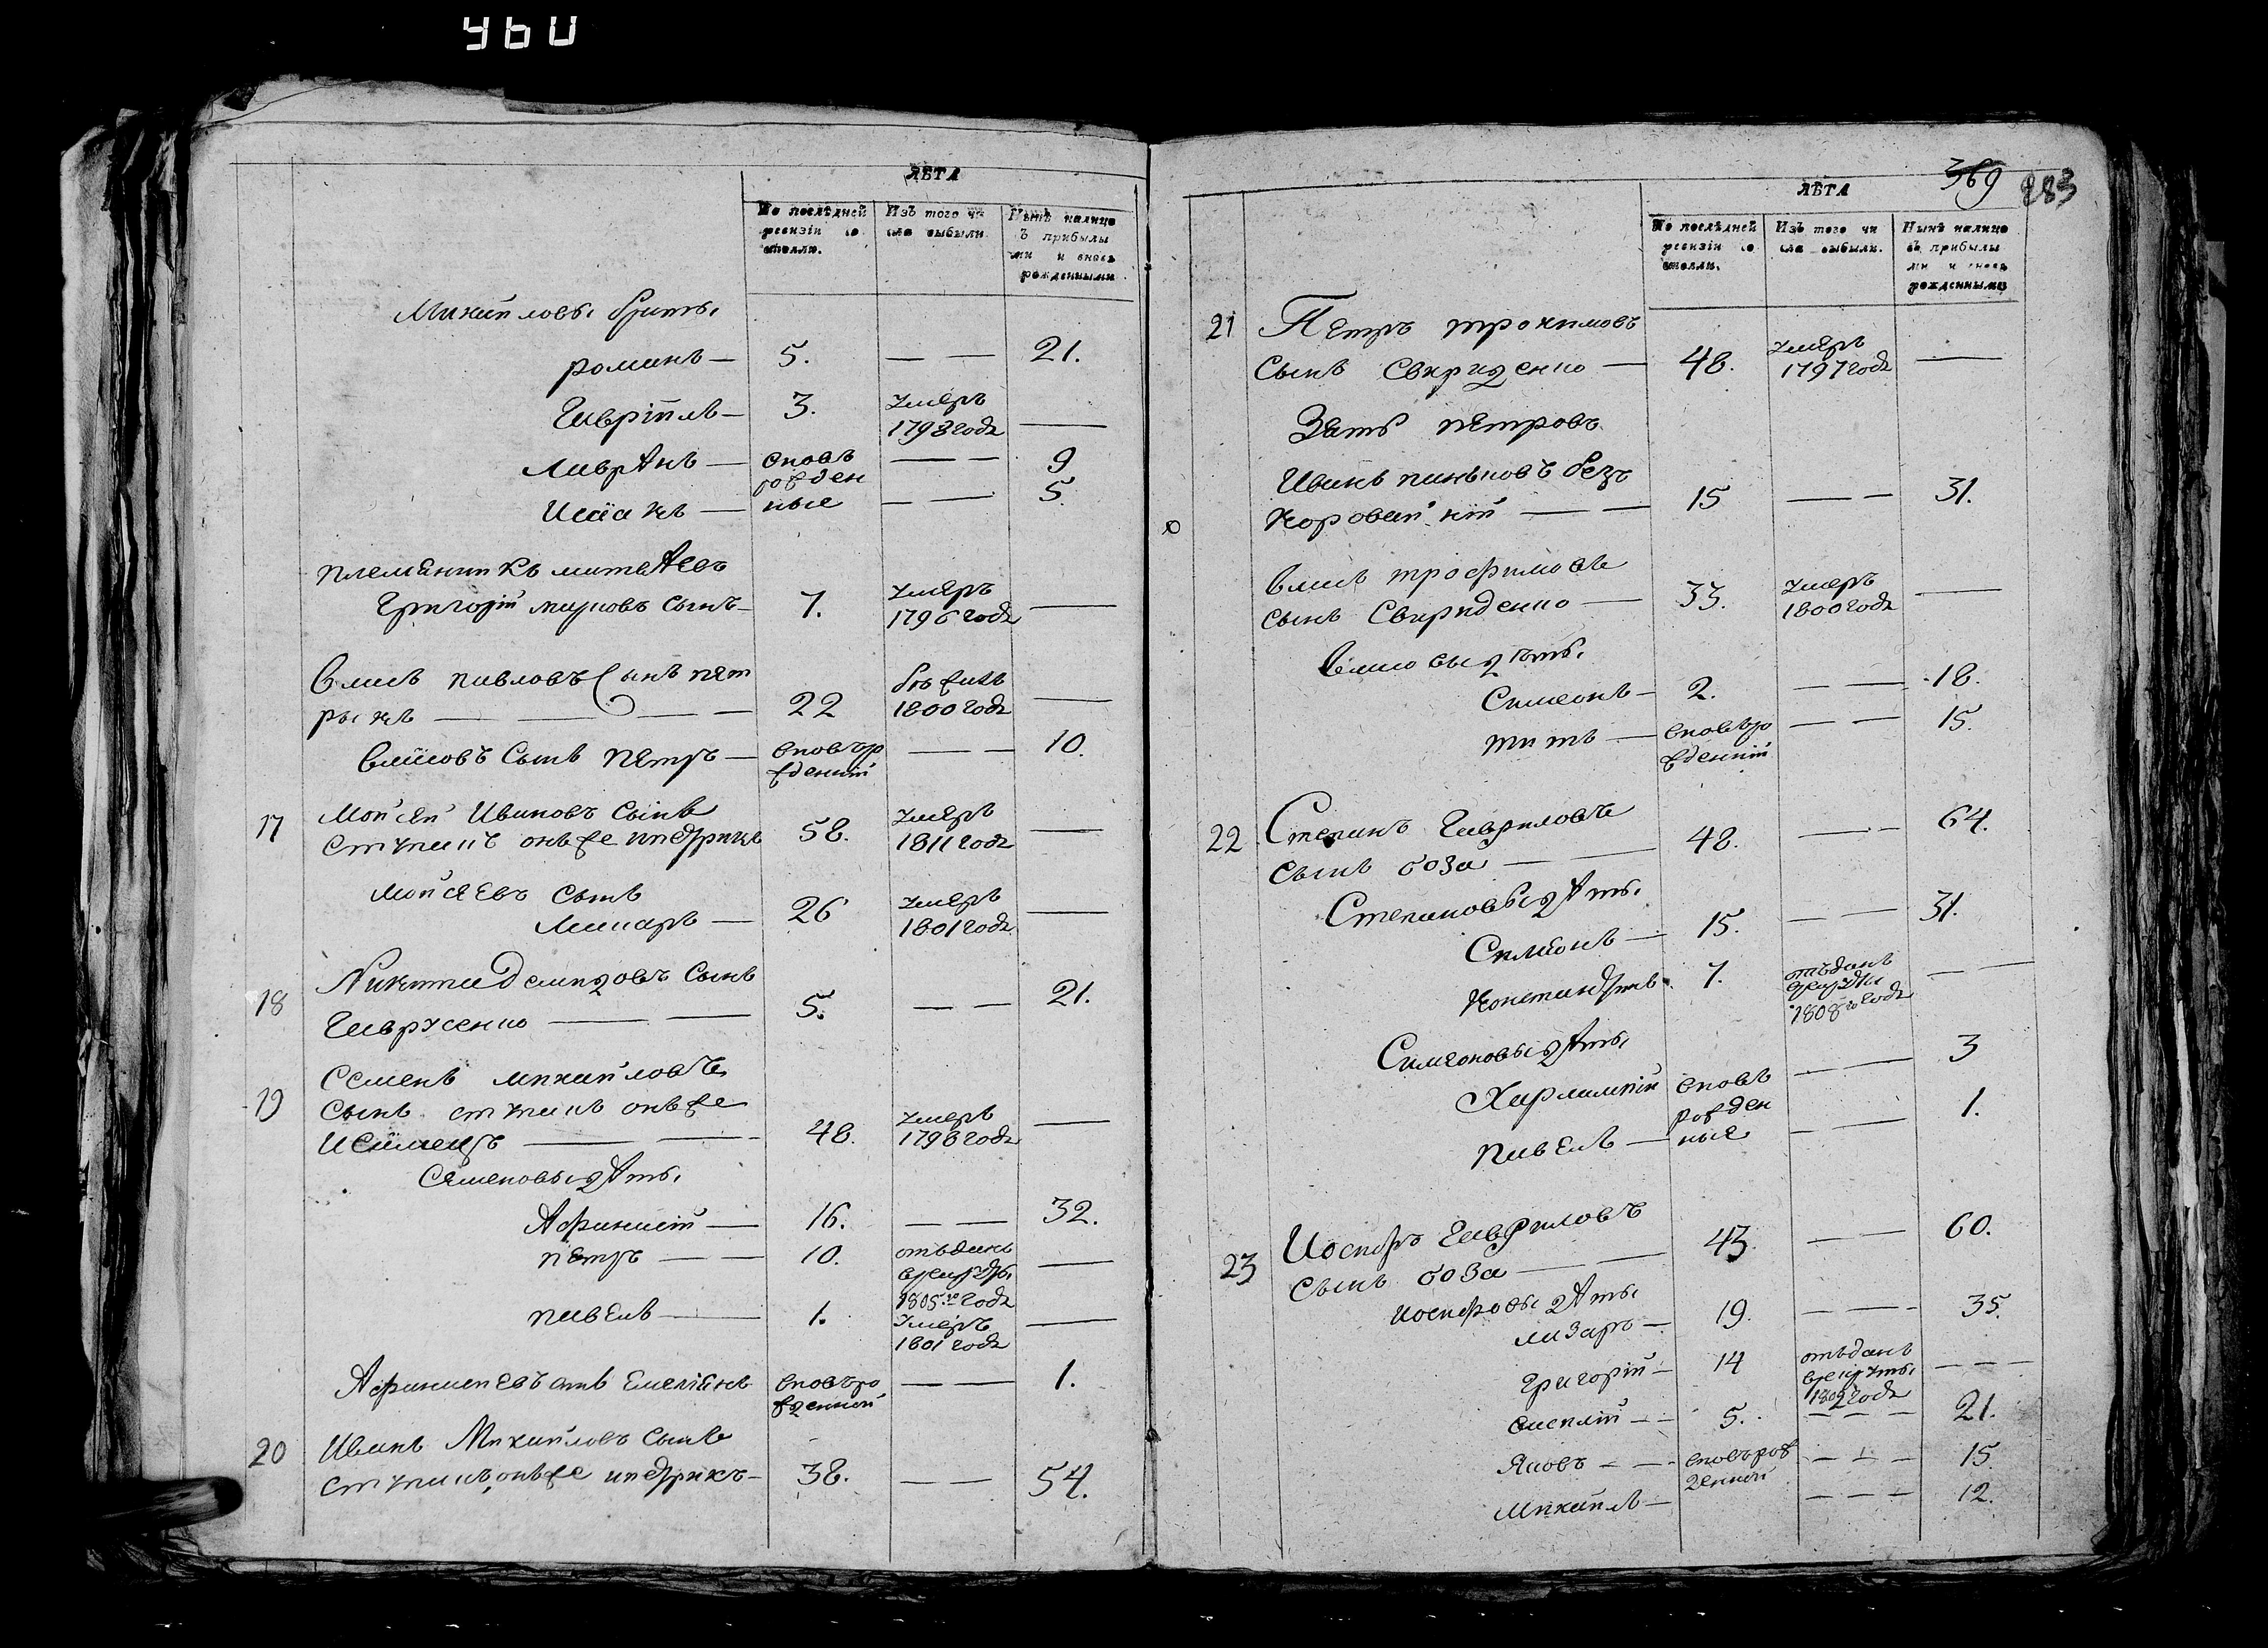 960
ЛѢТА
По послѣдней ревизіи состояло.
Изъ того числа выбыли
Нынѣ налицо съ прибылыми и вновь рожденными
Михайловы браты
романъ — 5. — — 21.
Гавріилъ — 3. умеръ 1798 года —
Лаврѣнъ — вновь — — 9
рожден
Исаакъ — ные — — 5.
племѣнникъ матвѣевъ
Григорій марковъ сынъ — 7. умеръ 1796 года —
Власъ павловъ Сынъ пет
рыкъ — — — — 22 бѣжалъ 1800 года —
власовъ Сынъ петръ — вновь ро — — 10.
жденній
17 Мойсей Ивановъ Сынъ
ступакъ онъ же индрикъ 58. умеръ 1811 года —
мойсеевъ сынъ
Макаръ — 26 умеръ 1801 года —
18 Никита Демидовъ Сынъ
Гаврусенко — — 5. — — 21.
19 Семенъ михайловъ
Сынъ ступакъ онъ же
— — 48. умеръ 1798 года —
Семеновы дѣты
Афанасій — 16. — — 32.
петръ — — 10. отъданъ врекруты 1805го года —
павелъ — 1. умеръ 1801 года —
Афанасіевъ сынъ Емеліянъ вновь ро — — 1.
жденной
20 Иванъ Михайловъ сынъ
ступакъ онъ же индрикъ — 38. — — 54.
369 283
ЛѢТА
По послѣдней ревизіи состояло.
Изъ того числа выбыли.
Нынѣ налицо съ прибылыми и вновь рожденными
21 Петръ трохимовъ
Сынъ Свириденко — 48. умеръ 1797 года —
Зять петровъ
Иванъ паньковъ без
коровайній — — 15 — — 31.
Власъ трофимовъ
сынъ Свириденко — 33. умеръ 1800 года —
Власовы дѣты
Симеонъ — 2. — — 18.
титъ — вновь ро — — 15.
жденній
22 Степанъ Гавриловъ
Сынъ боза — — 48. — — 64.
Степановы дѣты
Симеонъ — 15. — — 31.
Константинъ 7. отъданъ врекруты 1808го года — —
Симеоновы дѣты
Харлампій вновь — — 3
рожден
павелъ — ные — — 1.
23 Иосифъ Гавриловъ
Сынъ боза — — 43. — — 60.
иосифовы дѣты
лазаръ — 19. — — 35.
Григорій — 14 отъданъ врекруты 1802 года — — —
василій — 5. — — — 21.
Яковъ — — вновь рож — — — 15
денной
Михайлъ — — — — 12.